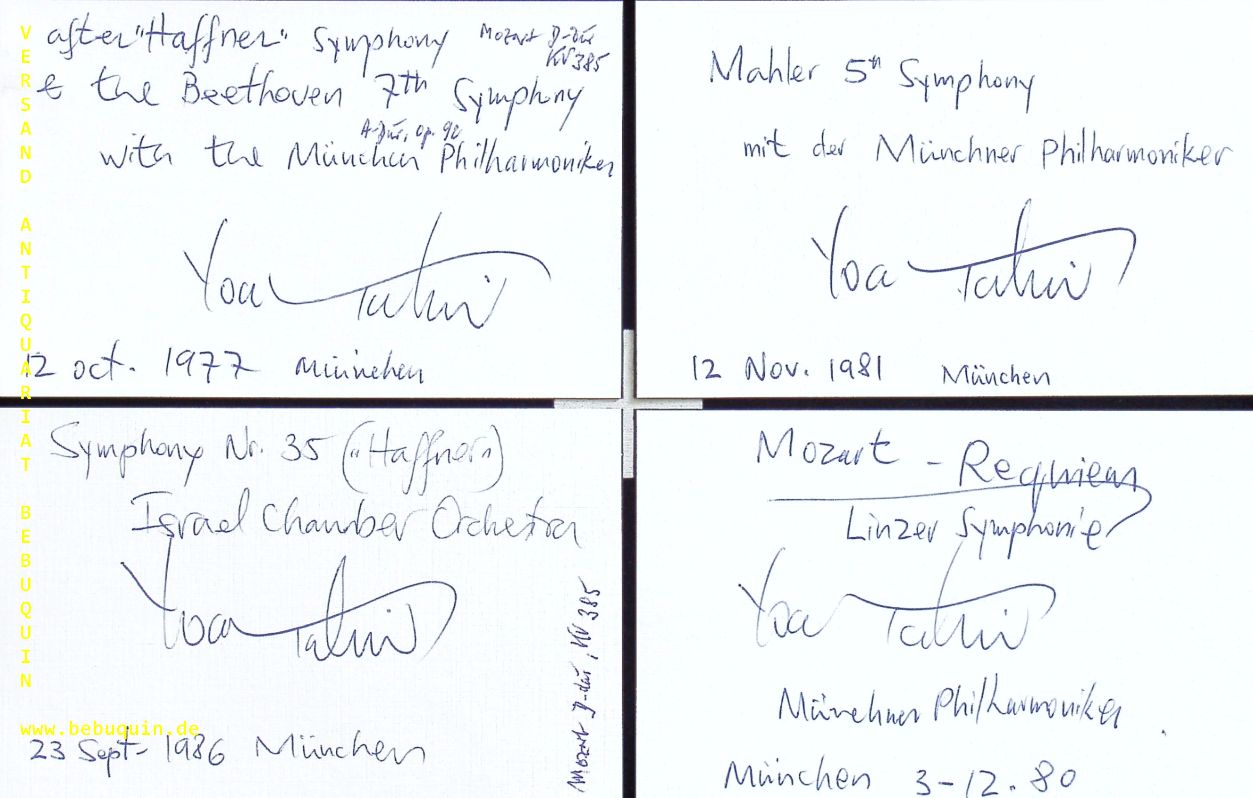 after "Haffner" Symphony Mozart D-dur
KV 385
& the Beethoven 7th Symphony
A-Dur, op. 92
with the München Philharmoniker
Yoav Talmi
12 oct. 1977 München
Mahler 5th Symphony
mit der Münchner Philharmoniker
Yoav Talmi
12 Nov. 1981 München
Symphony Nr. 35 ("Haffner")
Israel Chamber Orchestra
Yoav Talmi
Mozart D-dur, KV 385
23 Sept- 1986 München
Mozart - Requiem
Linzer Symphonie
Yoav Talmi
Münchner Philharmoniker
München 3-12.80
VERSAND ANTIQUARIAT BEBUQUIN
www.bebuquin.de